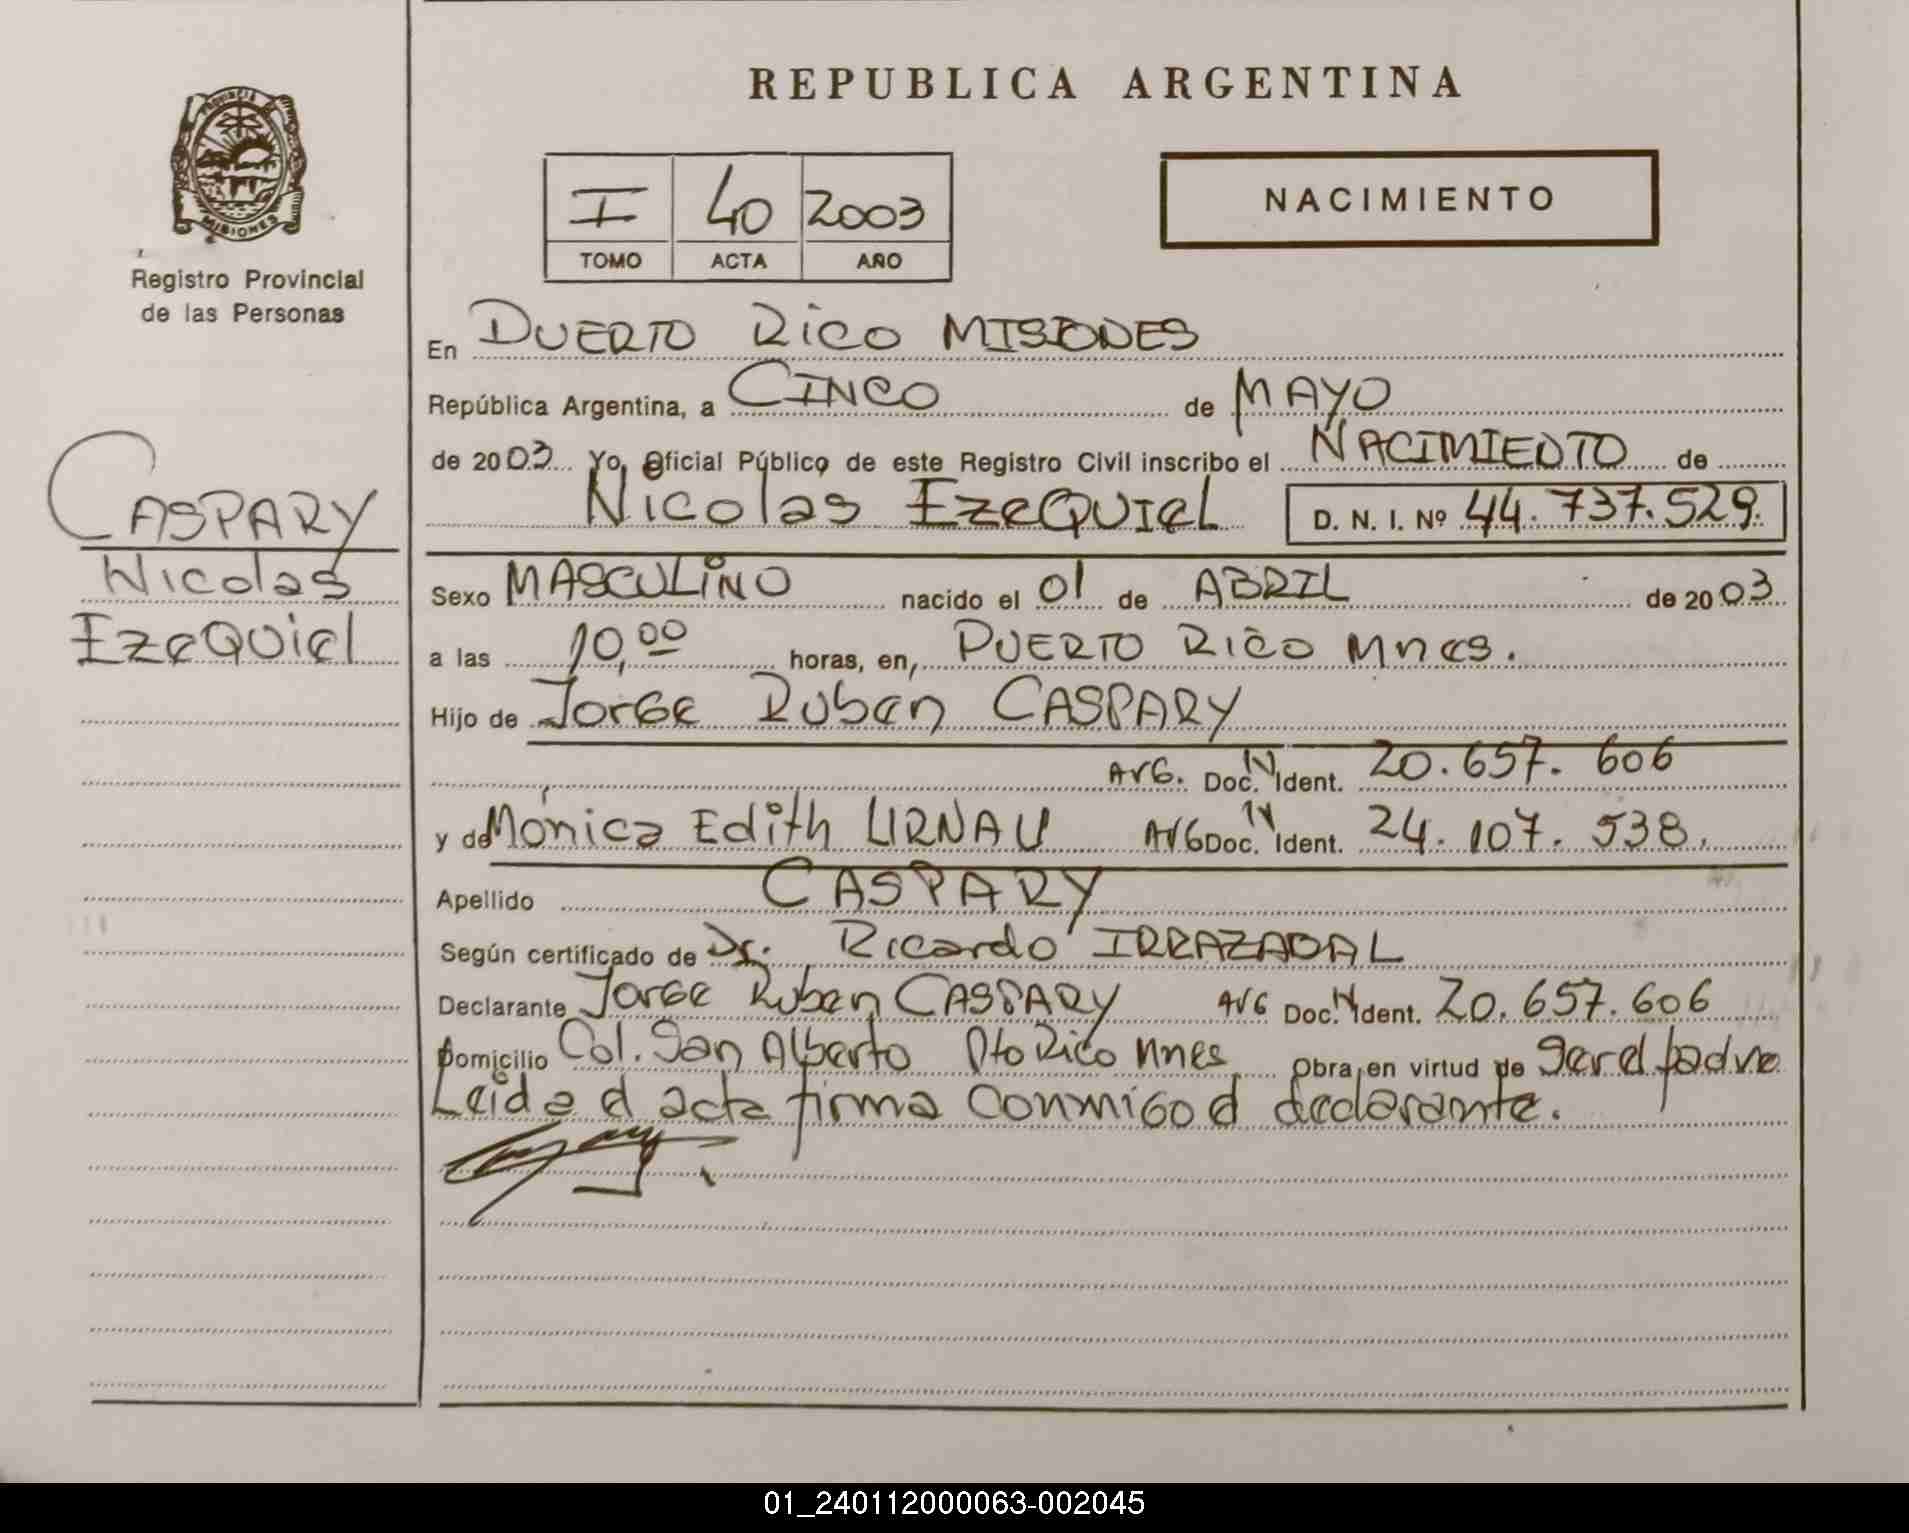 PROVINCIA DE
MISIONES
Registro Provincial
de las Personas
CASPARY
Nicolas
EzeQuiel
REPUBLICA ARGENTINA
I 40 2003
TOMO ACTA AÑO
NACIMIENTO
En PUERTO RiCO MISIONES
República Argentina, a CINCO de MAYO
de 2003 Yo, Oficial Público de este Registro Civil inscribo el NACIMIENTO de
Nicolas EzeQUIeL D. N. I. Nº 44.737.529.
Sexo MASCULiNO nacido el 01 de ABRIL de 2003
a las 10,00 horas, en, PUERTO RICO Mnes.
Hijo de Jorge Ruben CASPARY
ArG. Doc. N Ident. 20.657.606
y de Mónica Edith LIRNAU ArG Doc. N Ident. 24.107.538.
Apellido CASPARY
Según certificado de Dr. Ricardo IRRAZABAL
Declarante Jorge Ruben CASPARY ArG Doc. N Ident. 20.657.606
Domicilio Col. San Alberto Pto Rico Mnes Obra en virtud de ser el padre
Leida el acta firma conmigo el declarante.
01_240112000063-002045